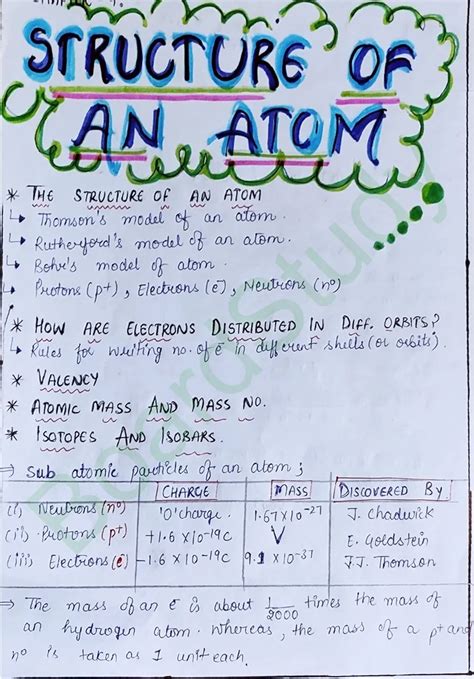 STRUCTURE OF
AN ATOM
* THE STRUCTURE OF AN ATOM
↳ Thomson's model of an atom.
↳ Rutherford's model of an atom.
↳ Bohr's model of atom.
↳ Protons (p+), Electrons (ē), Neutrons (n°)
* HOW ARE ELECTRONS DISTRIBUTED IN DIFF. ORBITS?
↳ Rules for writing no. of ē in different shells (or orbits).
* VALENCY
* ATOMIC MASS AND MASS NO.
* ISOTOPES AND ISOBARS.
⇒ Sub atomic particles of an atom ;
CHARGE MASS DISCOVERED BY
(i) Neutrons (n°) 'O' charge. 1.67 X 10⁻²⁷ J. Chadwick
(ii) Protons (p+) +1.6 X 10⁻¹⁹C E. Goldstein
(iii) Electrons (ē) -1.6 X 10⁻¹⁹C 9.1 X 10⁻³⁷ J.J. Thomson
⇒ The mass of an ē is about 1/2000 times the mass of
an hydrogin atom. whereas, the mass of a p+ and
n° is taken as 1 unit each.
BoardStudy